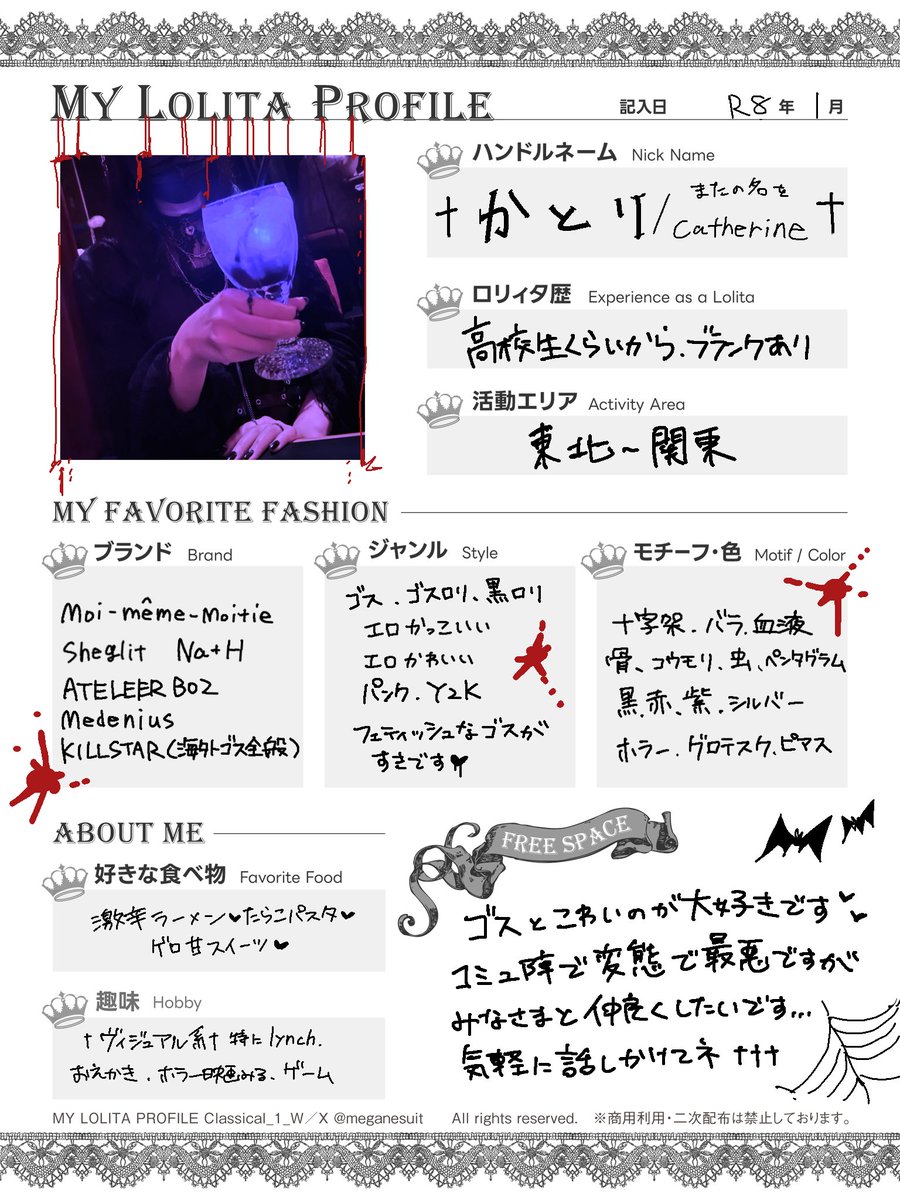 MY LOLITA PROFILE
記入日 R8年 1月
ハンドルネーム Nick Name
†かとり/またの名を Catherine†
ロリィタ歴 Experience as a Lolita
高校生くらいから.ブランクあり
活動エリア Activity Area
東北~関東
MY FAVORITE FASHION
ブランド Brand
Moi-même-Moitie
Sheglit Na+H
ATELEER BOZ
Medenius
KILLSTAR(海外ゴス全般)
ジャンル Style
ゴス、ゴスロリ、黒ロリ
エロかっこいい
エロかわいい
パンク、Y2K
フェティッシュなゴスが
すきです♥
モチーフ・色 Motif / Color
十字架、バラ、血液
骨、コウモリ、虫、ペンタグラム
黒、赤、紫、シルバー
ホラー、グロテスク、ピアス
ABOUT ME
好きな食べ物 Favorite Food
激辛ラーメン♥たらこパスタ♥
ゲロ甘スイーツ♥
趣味 Hobby
†ヴィジュアル系† 特にlynch.
おえかき、ホラー映画みる、ゲーム
FREE SPACE
ゴスとこわいのが大好きです♥♥
コミュ障で変態で最悪ですが
みなさまと仲良くしたいです...
気軽に話しかけてネ†††
MY LOLITA PROFILE Classical_1_W/X @meganesuit All rights reserved. ※商用利用・二次配布は禁止しております。